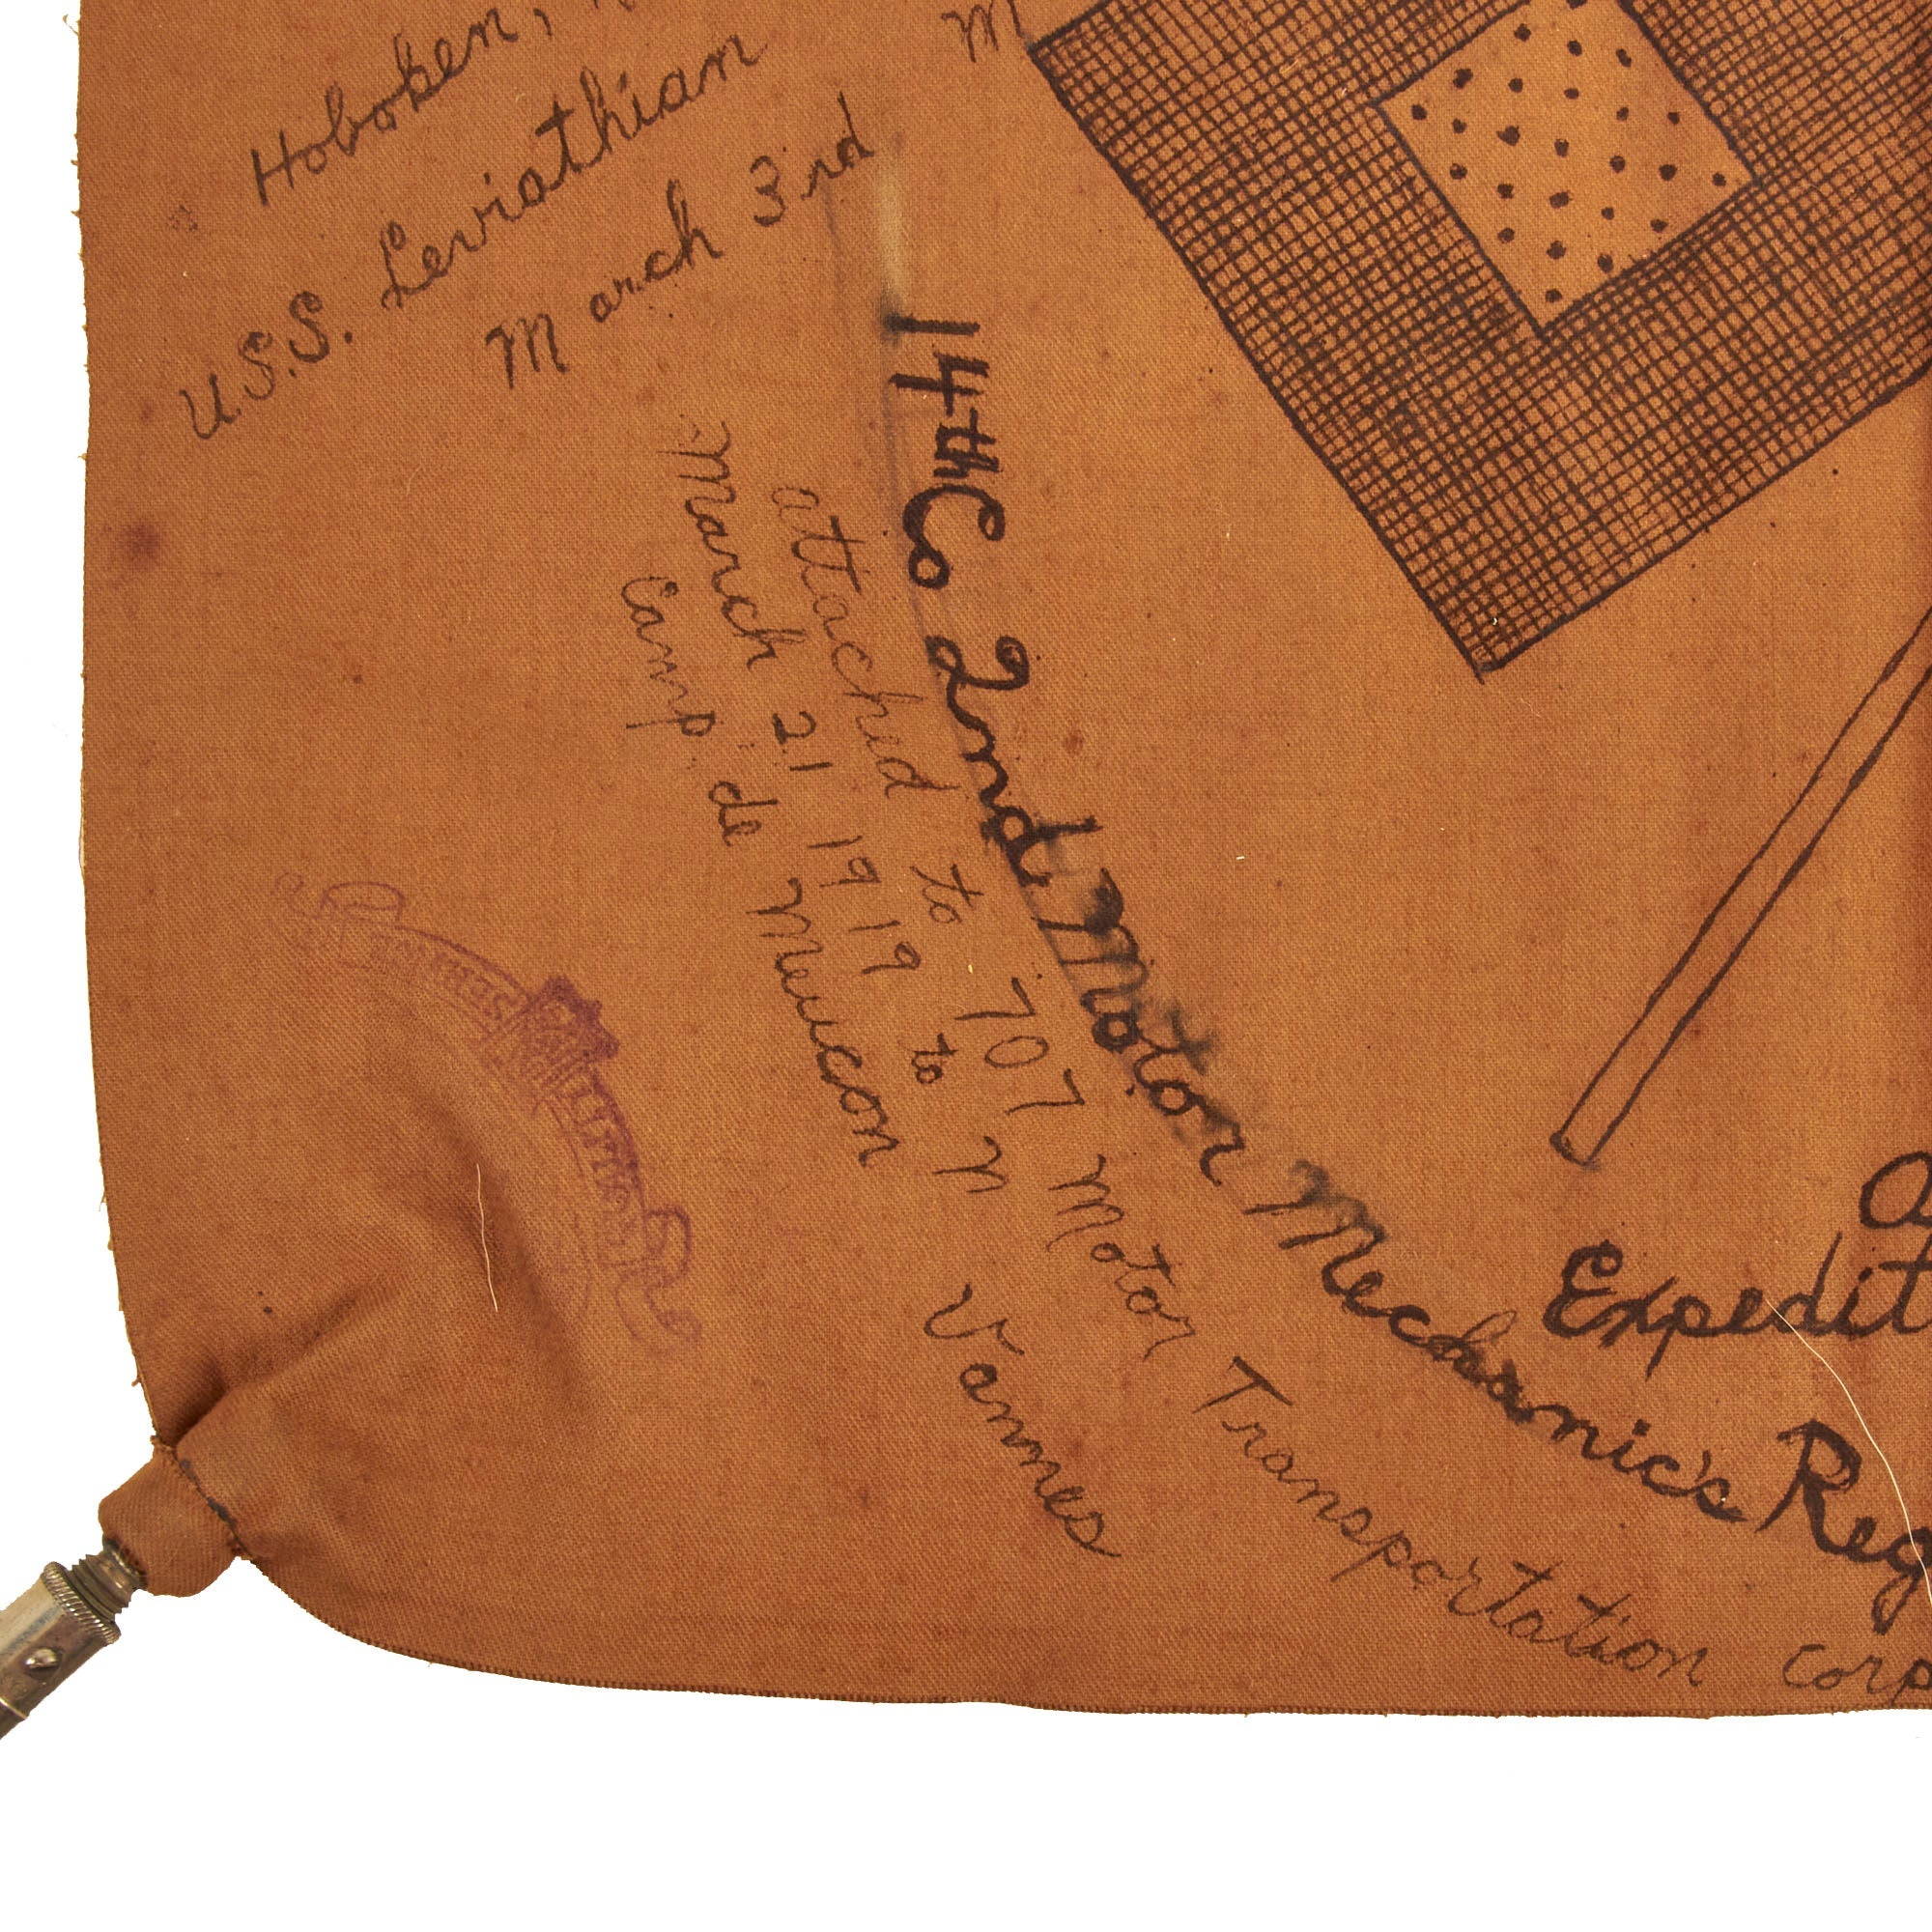 Hoboken,
U.S.S. Leviathian
March 3rd
M
14th Co 2nd Motor Mechanic's Reg
attached to 707 Motor Transportation Corp
March 21 1919 to N Vannes
Camp de Meucon
Expedit